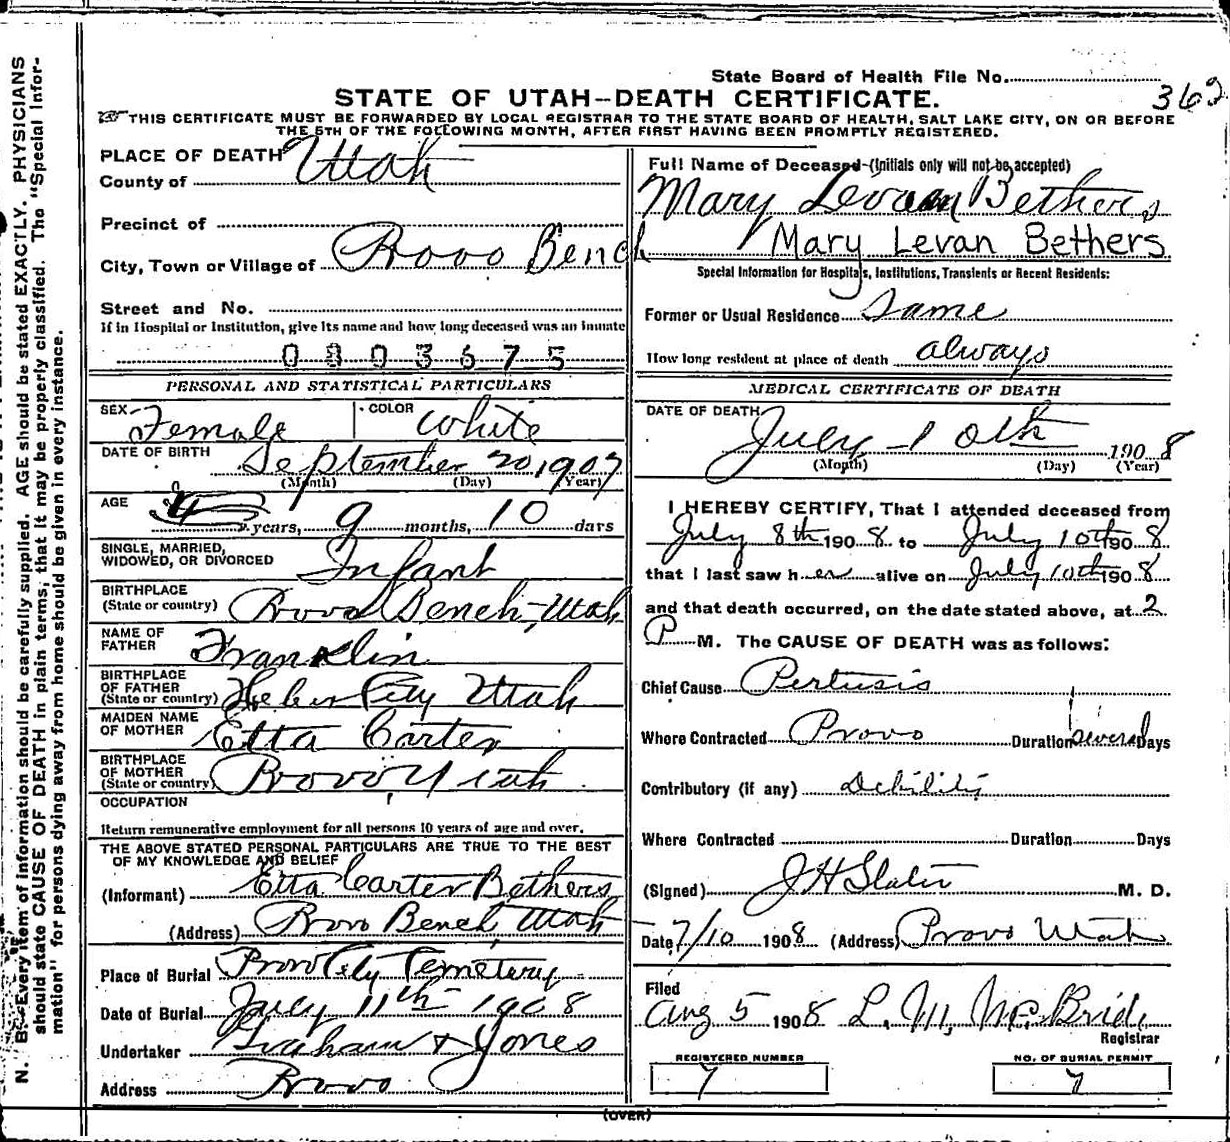 State Board of Health File No.
362
STATE OF UTAH—DEATH CERTIFICATE.
THIS CERTIFICATE MUST BE FORWARDED BY LOCAL REGISTRAR TO THE STATE BOARD OF HEALTH, SALT LAKE CITY, ON OR BEFORE
THE 5TH OF THE FOLLOWING MONTH, AFTER FIRST HAVING BEEN PROMPTLY REGISTERED.
PLACE OF DEATH
County of Utah
Precinct of
City, Town or Village of Provo Bench
Street and No.
If in Hospital or Institution, give its name and how long deceased was an inmate
0803675
PERSONAL AND STATISTICAL PARTICULARS
SEX Female COLOR White
DATE OF BIRTH September 20, 1907
(Month) (Day) (Year)
AGE years, 9 months, 10 days
SINGLE, MARRIED,
WIDOWED, OR DIVORCED Infant
BIRTHPLACE
(State or country) Provo Bench, Utah
NAME OF
FATHER Franklin
BIRTHPLACE
OF FATHER
(State or country) Heber City Utah
MAIDEN NAME
OF MOTHER Etta Carter
BIRTHPLACE
OF MOTHER
(State or country) Provo, Utah
OCCUPATION
Return remunerative employment for all persons 10 years of age and over.
THE ABOVE STATED PERSONAL PARTICULARS ARE TRUE TO THE BEST
OF MY KNOWLEDGE AND BELIEF
(Informant) Etta Carter Bethers
(Address) Provo Bench, Utah
Place of Burial Provo City Cemetery
Date of Burial July 11th 1908
Undertaker Graham & Jones
Address Provo
Full Name of Deceased—(Initials only will not be accepted)
Mary Levan Bethers
Mary Levan Bethers
Special Information for Hospitals, Institutions, Transients or Recent Residents:
Former or Usual Residence Same
How long resident at place of death always
MEDICAL CERTIFICATE OF DEATH
DATE OF DEATH
July 10th 1908
(Month) (Day) (Year)
I HEREBY CERTIFY, That I attended deceased from
July 8th 1908 to July 10th 1908
that I last saw her alive on July 10th 1908
and that death occurred, on the date stated above, at 2
P M. The CAUSE OF DEATH was as follows:
Chief Cause Pertusis
Where Contracted Provo Duration several Days
Contributory (if any) Debility
Where Contracted Duration Days
(Signed) J H Slater M. D.
Date 7/10 1908 (Address) Provo Utah
Filed
Aug 5 1908 L. M. McBride
Registrar
REGISTERED NUMBER
7
NO. OF BURIAL PERMIT
7
(OVER)
N. B.—Every item of information should be carefully supplied. AGE should be stated EXACTLY. PHYSICIANS
should state CAUSE OF DEATH in plain terms, that it may be properly classified. The "Special Infor-
mation" for persons dying away from home should be given in every instance.